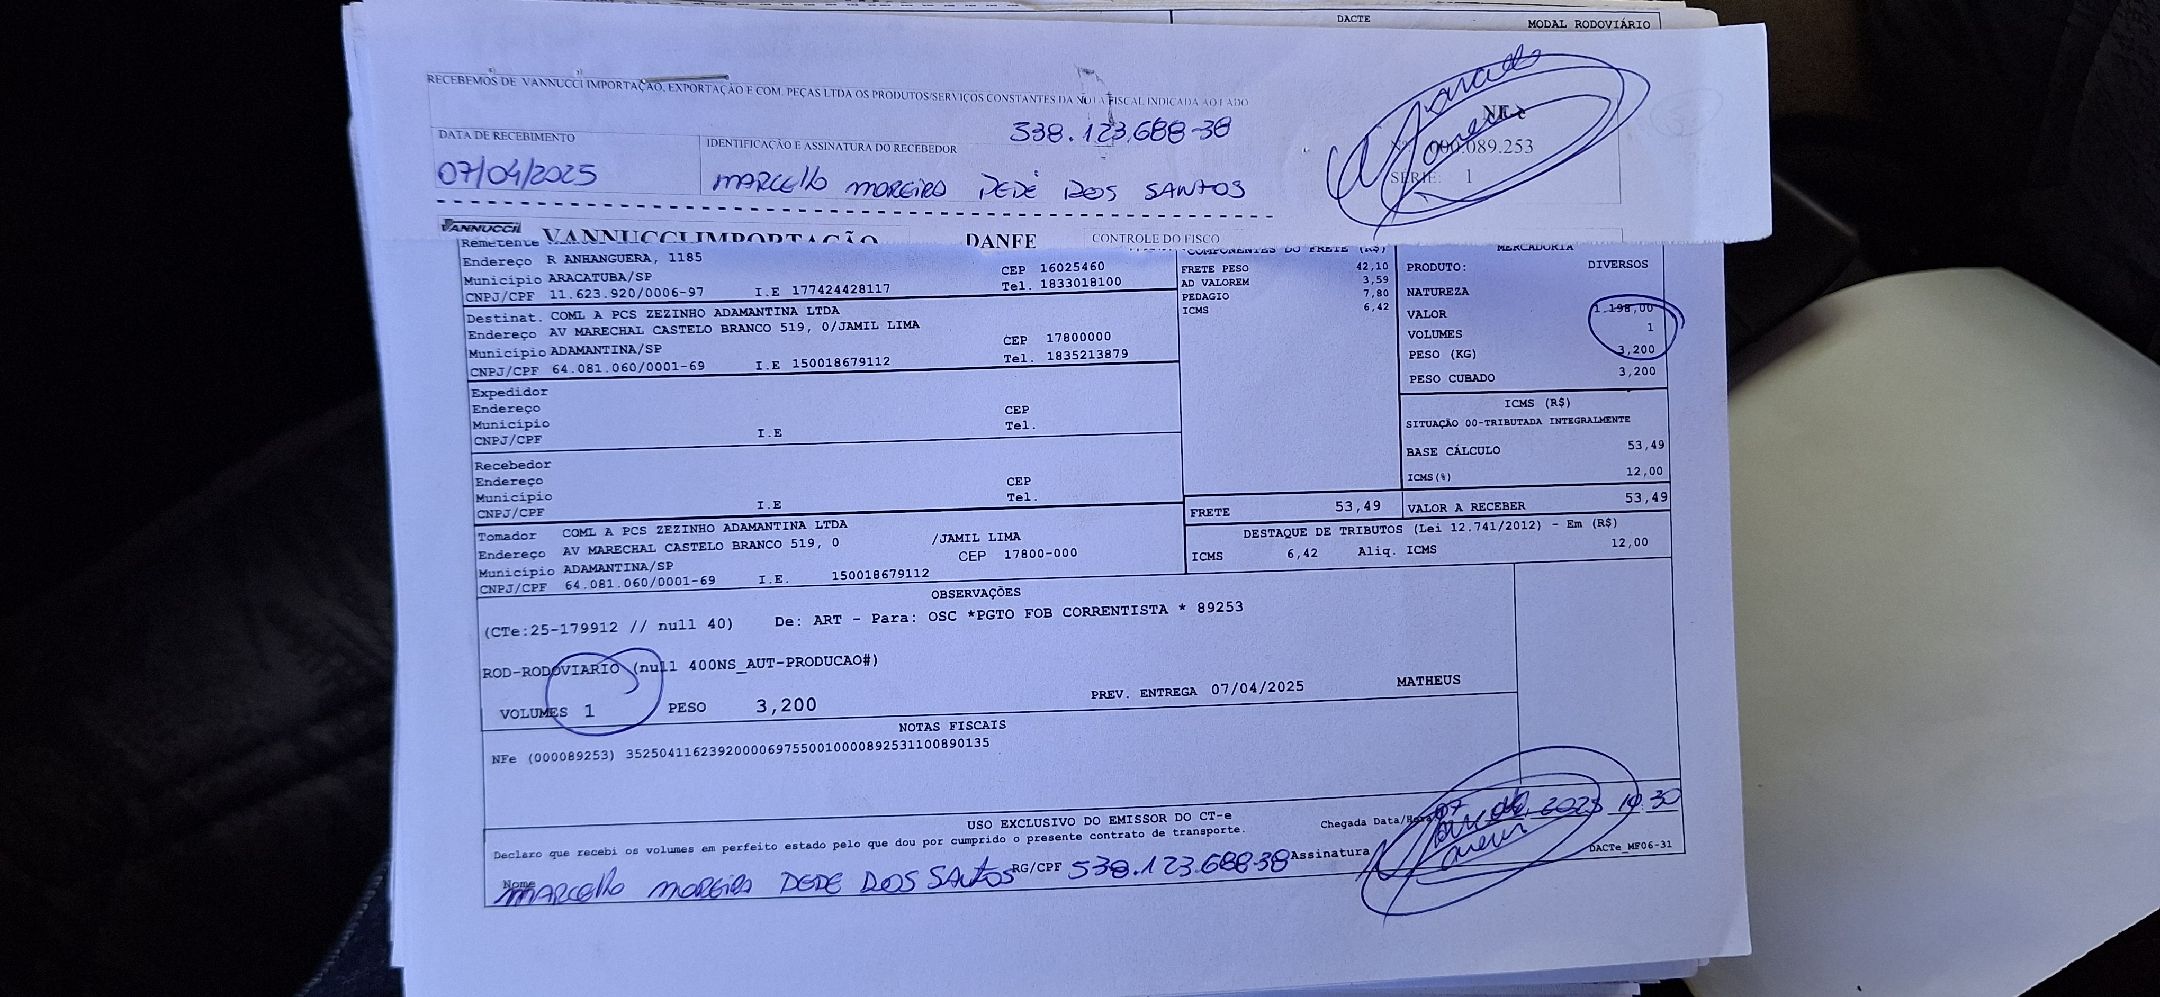 DACTE
MODAL RODOVIÁRIO
RECEBEMOS DE VANNUCCI IMPORTAÇÃO, EXPORTAÇÃO E COM. PEÇAS LTDA OS PRODUTOS/SERVIÇOS CONSTANTES DA NOTA FISCAL INDICADA AO LADO
DATA DE RECEBIMENTO
07/04/2025
IDENTIFICAÇÃO E ASSINATURA DO RECEBEDOR
538.123.688-38
MARCELLO MOREIRA DEDÉ DOS SANTOS
NF-e
Nº 000.089.253
SÉRIE: 1
VANNUCCI
VANNUCCI IMPORTAÇÃO
DANFE
CONTROLE DO FISCO
Remetente
Endereço R ANHANGUERA, 1185
CEP 16025460
Município ARACATUBA/SP
Tel. 1833018100
CNPJ/CPF 11.623.920/0006-97 I.E 177424428117
Destinat. COML A PCS ZEZINHO ADAMANTINA LTDA
Endereço AV MARECHAL CASTELO BRANCO 519, 0/JAMIL LIMA
CEP 17800000
Município ADAMANTINA/SP
Tel. 1835213879
CNPJ/CPF 64.081.060/0001-69 I.E 150018679112
Expedidor
Endereço CEP
Município Tel.
CNPJ/CPF I.E
Recebedor
Endereço CEP
Município Tel.
CNPJ/CPF I.E
Tomador COML A PCS ZEZINHO ADAMANTINA LTDA
Endereço AV MARECHAL CASTELO BRANCO 519, 0 /JAMIL LIMA
Município ADAMANTINA/SP CEP 17800-000
CNPJ/CPF 64.081.060/0001-69 I.E. 150018679112
COMPONENTES DO FRETE (R$)
FRETE PESO 42,10
AD VALOREM 3,59
PEDAGIO 7,80
ICMS 6,42
MERCADORIA
PRODUTO: DIVERSOS
NATUREZA
VALOR 1.198,00
VOLUMES 1
PESO (KG) 3,200
PESO CUBADO 3,200
ICMS (R$)
SITUAÇÃO 00-TRIBUTADA INTEGRALMENTE
BASE CÁLCULO 53,49
ICMS(%) 12,00
FRETE 53,49
VALOR A RECEBER 53,49
DESTAQUE DE TRIBUTOS (Lei 12.741/2012) - Em (R$)
ICMS 6,42 Aliq. ICMS 12,00
OBSERVAÇÕES
(CTe:25-179912 // null 40) De: ART - Para: OSC *PGTO FOB CORRENTISTA * 89253
ROD-RODOVIARIO (null 400NS_AUT-PRODUCAO#)
VOLUMES 1 PESO 3,200 PREV. ENTREGA 07/04/2025 MATHEUS
NOTAS FISCAIS
NFe (000089253) 35250411623920000697550010000892531100890135
USO EXCLUSIVO DO EMISSOR DO CT-e
Declaro que recebi os volumes em perfeito estado pelo que dou por cumprido o presente contrato de transporte.
Chegada Data/Hora 07 04 2025 14 30
Nome MARCELLO MOREIRA DEDE DOS SANTOS RG/CPF 538.123.688-38 Assinatura
DACTe_MF06-31